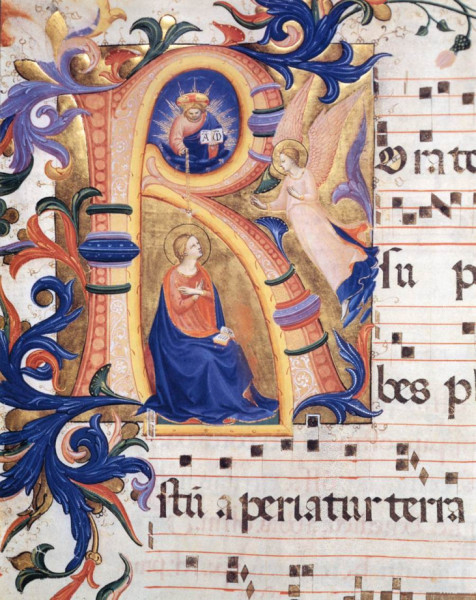 A ω
R
orate
su p
bes pl
stū aperiatur terra